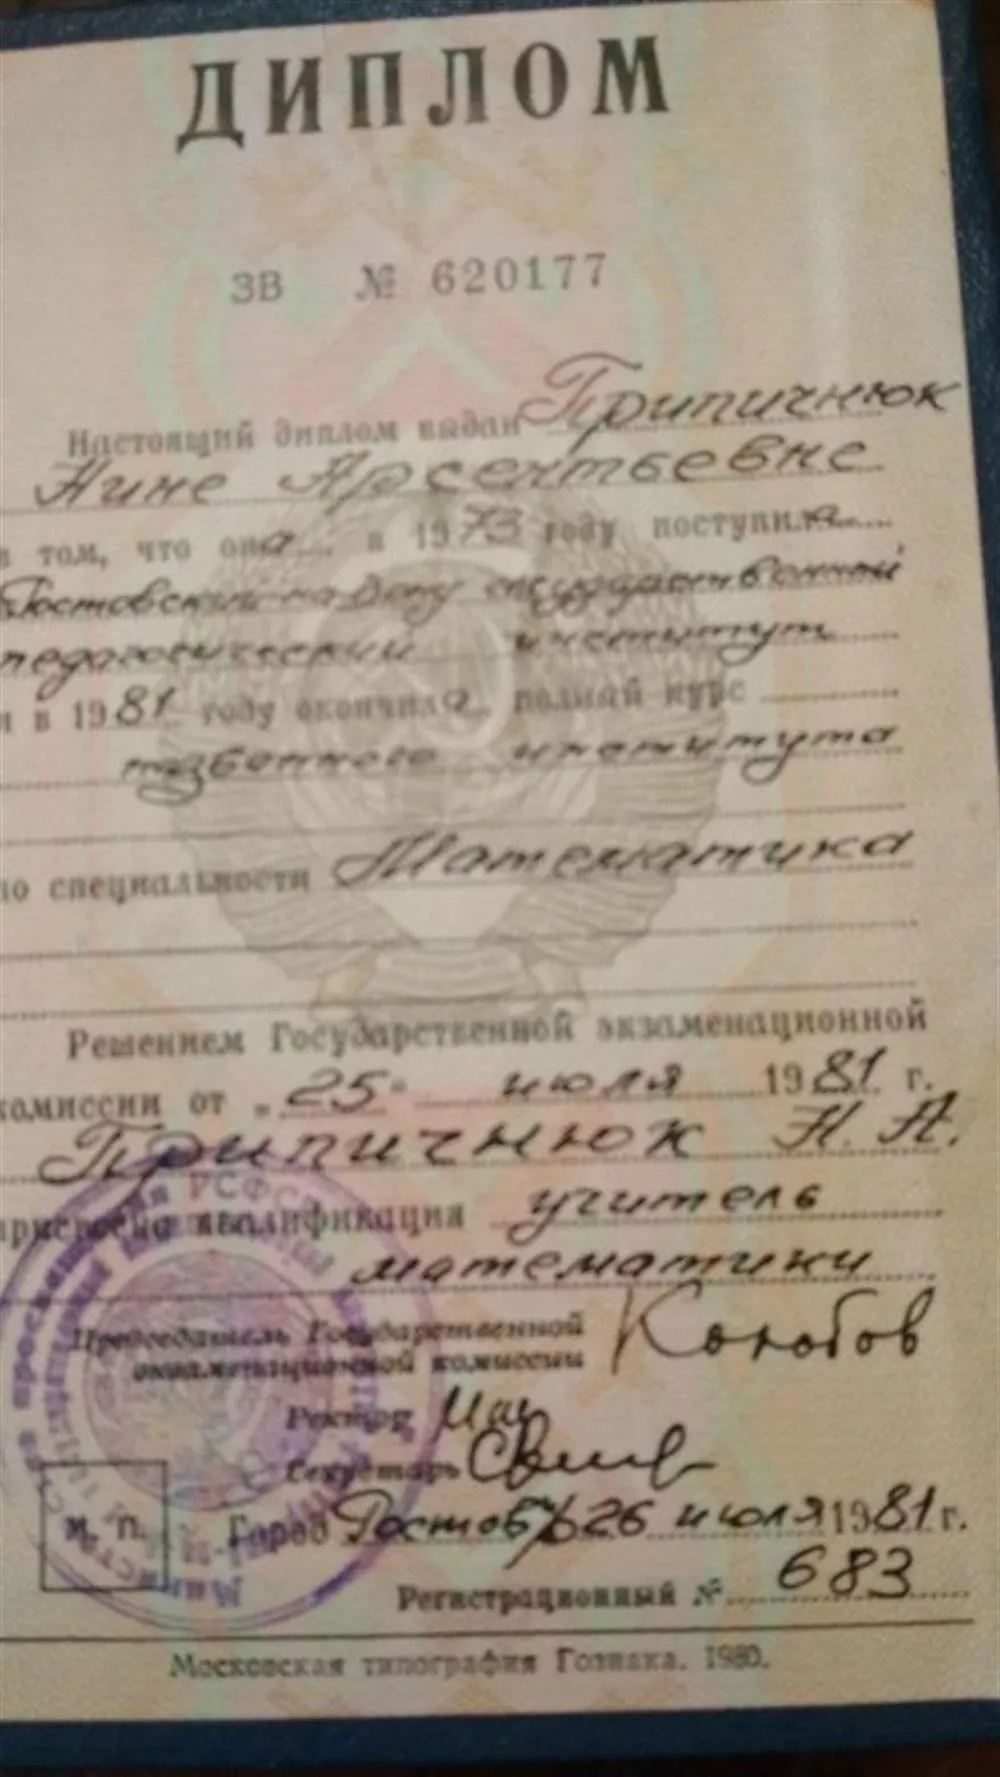 ДИПЛОМ
ЗВ № 620177
Настоящий диплом выдан Припичнюк
Нине Арсентьевне
в том, что она в 1973 году поступила
Ростовский-на-Дону государственный
педагогический институт
и в 1981 году окончила полный курс
названного института
по специальности Математика
Решением Государственной экзаменационной
комиссии от „25“ июля 1981 г.
Припичнюк Н. А.
присвоена квалификация учитель
математики
Председатель Государственной
экзаменационной комиссии
Ректор
Секретарь
М. П.
Город Ростов н/Д 26 июля 1981 г.
Регистрационный № 683
Московская типография Гознака. 1980.